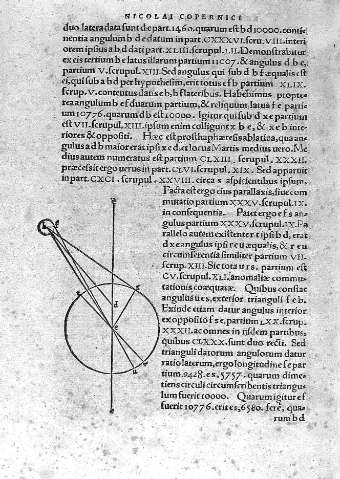 NICOLAI COPERNICI
duo latera data sunt de part. 1460. quarum est b d 10000. conti-
nentia angulum b d e datum in part. CXXXV. scru. VIII. interi
orem ipsius a b d dati part. XLIIII. scrupul. LII. Demonstrabitur
ex eis tertium b e latus illarum partium 11007. & angulus d b e,
partium V. scrupul. XIII. Sed angulus qui sub d b f æqualis est
ei, qui sub a b d per hypothesim, erit totus e b f partium XLIX.
scrup. V. contentus datis e b, b f lateribus. Habebimus propte-
rea angulum b e f duarum partium, & reliquum latus f e partiū
10776. quarum d b est 10000. Igitur qui sub d x e partium
est VII. scrup. XIII. ipsum enim colligunt x b e, & x e b interi-
ores & oppositi. Hæc est prosthaphæresis ablativa, qua an-
gulus a d b maior erat ipsi x e d, et locus Martis medius vero. Me
dius autem numeratus est partium CLXIII. scrupul. XXXII.
præcessit ergo verus in part. CLVI. scrupul. XIX. Sed apparuit
in part. CXCI. scrupul. XXVIII. circa s aspicientibus ipsum.
Facta est ergo eius parallaxis, siue com
mutatio partium XXXV. scrupul. IX.
in consequentia. Patet ergo e f s an-
gulus partium XXXV. scrupul. IX. Pa
rallelo autem existente r t ipsi b d, erat
d x e angulus ipsi r e u æqualis, & r u
circumferentia similiter partium VII-
scrup. XIII. Sic tota u r s, partium est
CV. scrupul. XL. anomaliæ commu-
tationis coæquatæ. Quibus constat
angulus u e s, exterior trianguli f e b.
Exinde etiam datur angulus interior
ex opposito f s e, partium LXX. scrup.
XXXII. ac omnes in ijsdem partibus,
quibus CLXXX. sunt duo recti. Sed
trianguli datorum angulorum datur
ratio laterum, ergo longitudine f e par
tium 9428. e s, 5757. quarum dime
tiens circuli circumscribentis triangu-
lum fuerit 10000. Quarum igitur e f
fuerit 10776. erit e s, 6580. ferè, qua-
rum b d